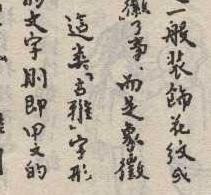 一般裝飾花紋或
徽了事，而是象徵
這类「古雅」字形
的文字則即甲文的